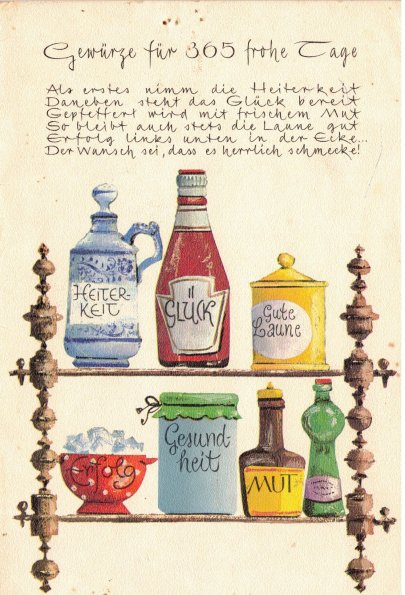 Gewürze für 365 frohe Tage
Als erstes nimm die Heiterkeit
Daneben steht das Glück bereit
Gepfeffert wird mit frischem Mut
So bleibt auch stets die Laune gut
Erfolg links unten in der Ecke...
Der Wunsch sei, dass es herrlich schmecke!
HEITER-
KEIT
GLÜCK
Gute
Laune
Erfolg
Gesund-
heit
MUT